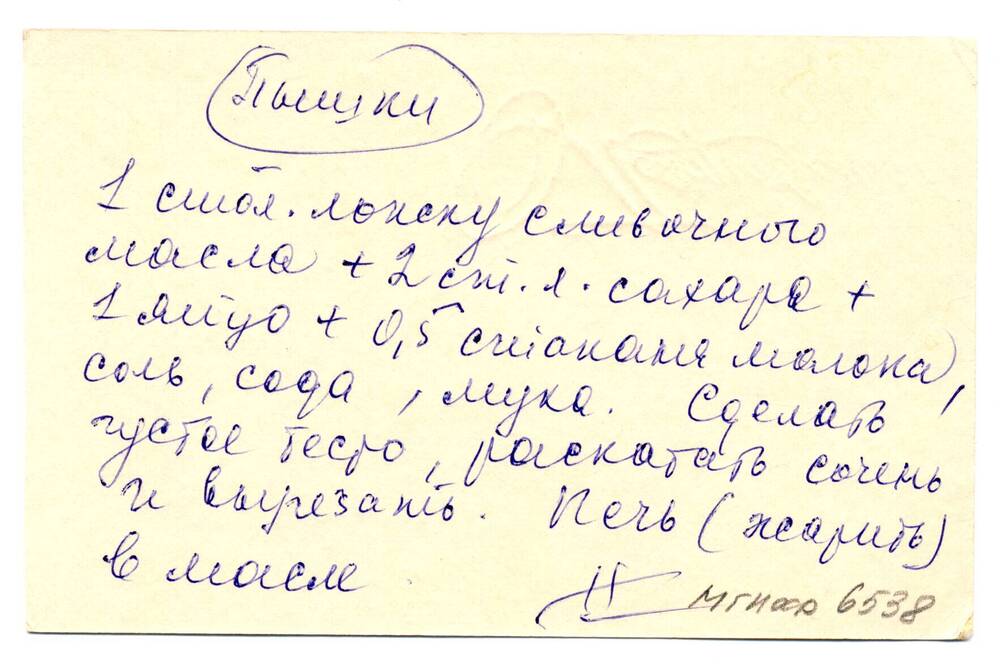 Пышки
1 стол. ложку сливочного
масла + 2 ст. л. сахара +
1 яйцо + 0,5 стакана молока,
соль, сода, мука. Сделать
густое тесто, раскатать сочень
и вырезать. Печь (жарить)
в масле
II
6538